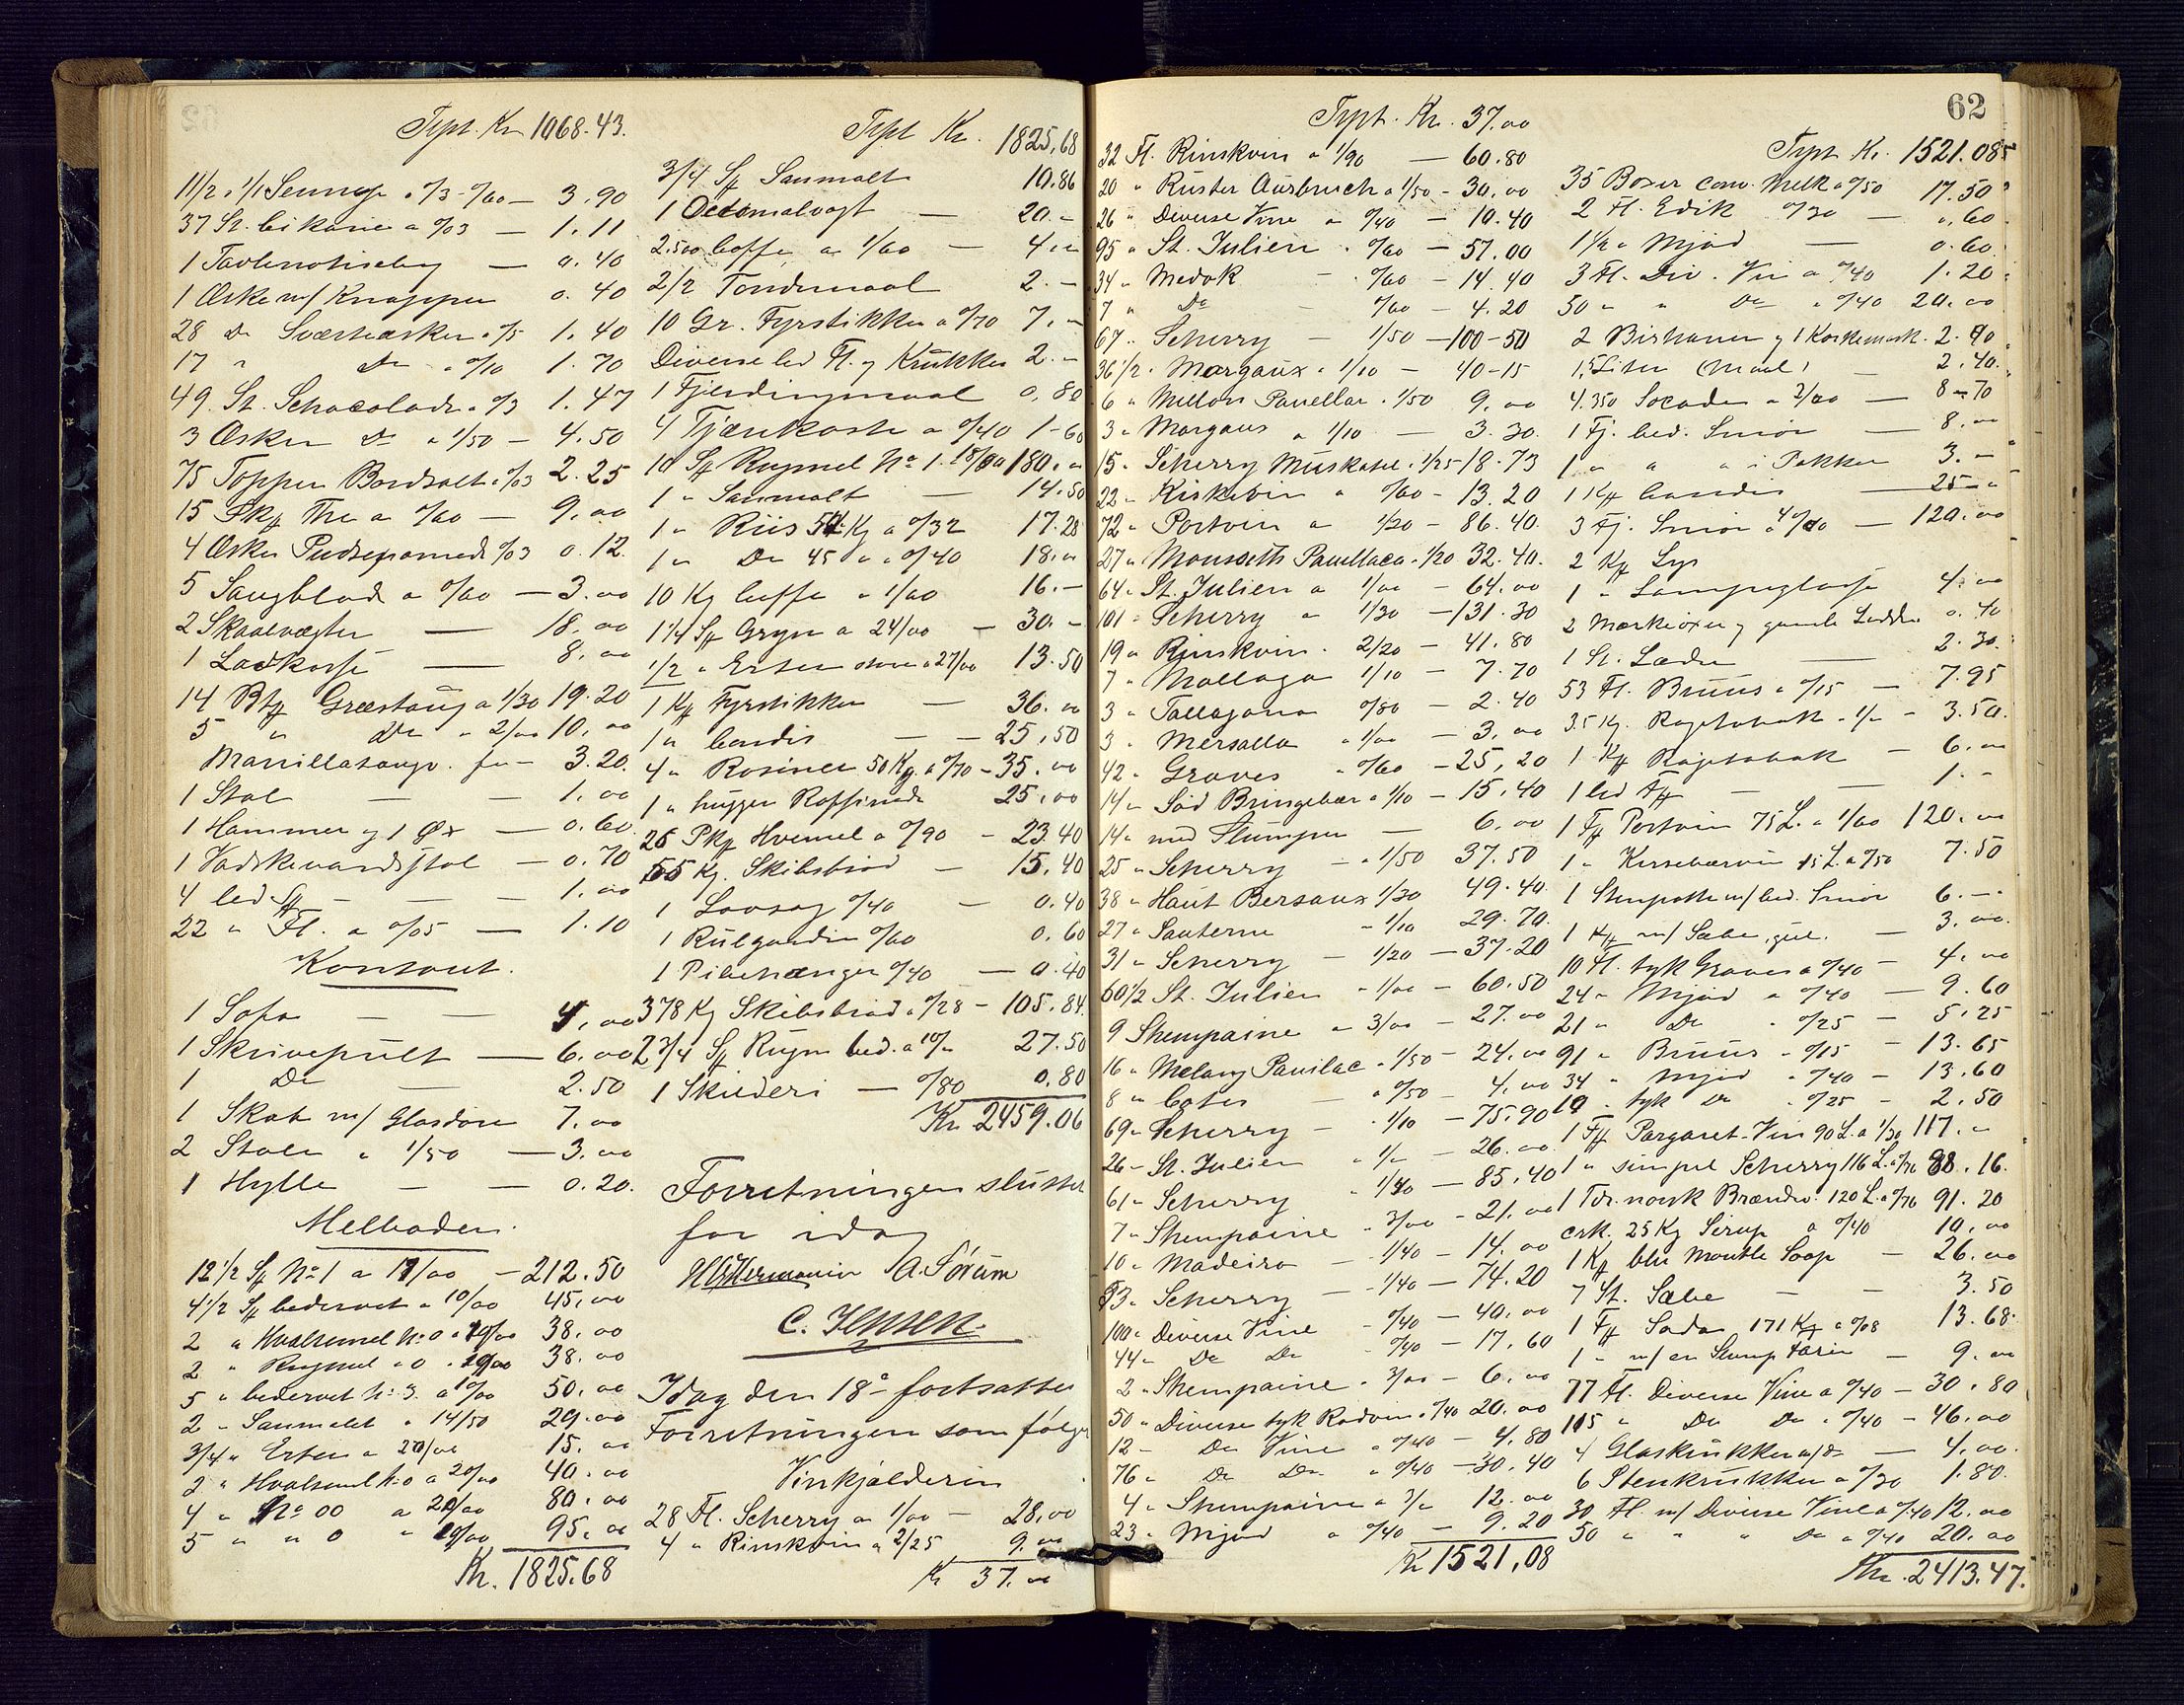 Trpt. Kr 1068.43.
11 1/2 . 1/1 Sennep . 0/3 - 0/60 — 3.90
37 St. Cikorie a 0/03 — 1.11
1 Tavlenotisebog — 0.40
1 Æske m/ Knapper 0.40
28 Do Sværteæsker . 0/5 1.40
17 " Do . 0/10 1.70
49 St. Schocolade . 0/3 1.47
3 Æsker Do a 1/50 — 4.50
75 Topper Bordsalt . 0/03 2.25
15 Pk The a 0/60 — 9.00
4 Æsker Pudsepomade 0/03 0.12
5 Saugblade a 0/60 — 3.00
2 Skaalvægter — 18.00
1 Ladkasse — 8.00
14 Græstoug a 1/30 19.20
5 " Do . 2/00 10.00
Manillatougv. for — 3.20.
1 Stol — 1.00
1 Hammer og 1 Øx — 0.60
1 Vadskevandsstol — 0.70
4 led — 1.00
22 " Fl. a 0/05 — 1.10
Kontoret.
1 Sofa — 4.00
1 Skrivepult — 6.00
1 Do — 2.50
1 Skab m/ Glasdøre 7.00
2 Stole a 1/50 — 3.00
1 Hylle — 0.20.
Melboden.
12 1/2 Sk No 1 a 17/00 — 212.50
4 1/2 Sk bedervet a 10/00 45.00
2 " Hvalsemel No 0 a 19/00 38.00
2 " Rugmel " 0 . 19/00 38.00
5 " bedervet No 3. a 10/00 50.00
2 " Sanmalet . 14/50 29.00
3/4 " Erter a 20/00 15.00
2 " Hvalsemel No 0 a 20/00 40.00
4 " No 00 a 20/00 80.00
5 " " 0 " 19/00 95.00
Kr. 1825.68
Trpt Kr. 1825,68
3/4 Sk Sanmalt 10.86
1 Decimalvægt — 20.-
2.500 Caffe a 1/60 — 4.00
2/2 Tøndemaal 2.-
10 Gr. Fyrstikker a 0/70 7.-
Diverse led Fl. og Krukker 2.-
1 Fjerdingmaal 0,80
4 Tjærekoste a 0/40 1-60
10 Sk Rugmel No 1. 18/00 180.00
1 " Sanmalt — 14.50
1 " Riis 54 Kg a 0/32 17.28
1 " Do 45 " a 0/40 18.00
10 Kg Caffe a 1/60 16.-
1 1/4 Sk Gryn a 24/00 — 30.-
1/2 " Erter store a 27/00 13.50
1 K Fyrstikker — 36.00
1 " Candis — 25,50
4 " Rosiner 50 Kg. a 0/70 - 35.00
1 " huggen Raffinade 25.00
26 Pk Hvemel a 0/90 - 23.40
55 Kg. Skibsbrød — 15.40
1 Løvsag 0/40 — 0.40
1 Rulgardin 0/60 0.60
1 Pibehænger 0/40 — 0.40
378 Kg Skibsbrød a 0/28 - 105.84.
2 3/4 Sk Rugm bed. a 10/00 27.50
1 Skilderi — 0/80 0.80
Kr. 2459.06
Forretningen sluttet
for idag
A. Sørum
C. Jensen.
Idag den 18de fortsattes
Forretningen som følger
Vinkjælderen
28 Fl. Scherry a 1/00 — 28.00
4 " Rinskvin a 2/25 9.00
Kr 37.00
62
Trpt. Kr. 37.00
32 Fl. Rinskvin a 1/90 — 60.80
20 " Ruster Ausbruch a 1/50 - 30.00
26 " Diverse Vine a 0/40 — 10.40
95 " St. Julien . 0/60 — 57.00
34 " Medok - . 0/60 — 14.40
7 " Do - 0/60 — 4.20
67 " Scherry — 1/50 — 100-50
36 1/2 " Margaux . 1/10 — 40-15
6 " Millon Pauellac . 1/50 9.00
3 " Margaus a 1/10 — 3.30.
15 " Scherry Muskatel . 1/25 - 18.73
22 " Kirskebin a 0/60 - 13.20
72 " Portvin a 1/20 - 86.40.
27 " Moussetts Pauellaca . 1/20 32.40.
64 " St. Julien a 1/00 — 64.00
101 " Scherry a 1/30 — 131.30
19 " Rinskvin . 2/20 — 41.80
7 " Mallaga 1/10 — 7.70
3 " Tallagona 0/80 — 2.40
3 " Mersalla a 1/00 — 3.00
42 " Graves . 0/60 — 25,20
14 " Sød Bringebær . 1/10 — 15.40
14 " med Slumper — 6.00
25 " Scherry — a 1/50 37.50
38 " Haut Bersaux 1/30 49.40.
27 " Sauterne - 1/10 29.70.
31 " Scherry — 1/20 — 37.20
60 1/2 St. Julien " 1/00 — 60.50
9 Shempaine a 3/00 — 27.00
16 " Melany Pauilac . 1/50 — 24.00
8 " Cotes a 0/50 — 4.00
69 " Scherry — . 1/10 — 75.90
26 " St. Julien a 1/00 — 26.00
61 " Scherry " 1/40 — 85,40
7 " Shempaine . 3/00 — 21.00
10 " Madeira — 1/40 — 14.00
53 " Scherry — 1/40 — 74.20
100 " Diverse Vine - 0/40 — 40.00
44 " Do Do - 0/40 — 17.60
2 " Shempaine . 3/00 — 6.00
50 " Diverse tyk Rødvin . 0/40 20.00
12 " Do Vine a 0/40 — 4.80
76 " Do Do a 0/40 — 30.40
4 " Shempaine a 3/00 12.00
23 " Mjød a 0/40 — 9.20
Kr 1521,08
Trpt Kr. 1521.085
35 Boxer Conv. Melk a 0/50 17.50
2 Fl. Edik 0/30 — 0.60
1 1/2 " Mjød — 0.60
3 Fl. Div. Vin a 0/40 1.20
50 " " Do a 0/40 20.00
2 Bishaner og 1 Korkemask. 2.90
1,5 Liter (Maal) — 2.40.
4.350 Socade a 2/00 — 8-70
1 Fj. bed. Smør — 8.00
1 " " " i Pakker 3.-
1 K Candis — 25-"
3 Fj. Smør a 40/00 — 120.00
2 K Lys
1 " Lampeglasse 4.00
2 Mærkeøxer og gamle Lodder 0.40
1 St. Læder — 2.30.
53 Fl. Bruus a 0/15 — 7.95
3.5 Kg. Røgetobak a 1/00 - 3.50.
1 K Røgetobak — 6.00
1 led — 1.-
1 F Portvin 75 L. a 1/60 120.00
1 " Kirsebærvin 15 L. a 0/50 7.50
1 Stenpotte m/ bed. Smør 6.-
1 m/ Sæbe, gul. — 3.00.
10 Fl. tyk Graves a 0/40 — 4.00
24 " Mjød a 0/40 — 9.60
21 " Do . 0/25 — 5.25
91 " Bruus . 0/15 — 13.65
34 " Mjød . 0/40 — 13.60
10 " tyk Do . 0/25 — 2.50
1 F Pargaret-Vin 90 L. a 1/30 117.00
1 " simpel Scherry 116 L. a 0/76 88.16.
1 Tdr. norsk Brændev. 120 L. a 0/76 91.20
crk. 25 Kg Sirup a 0/40 10.00
1 K blu Mouttle Soap — 26.00
7 St. Sæbe — 3.50
1 F Soda 171 Kg a 0/08 13.68.
1 " m/ en Slump Farin — 9.00
77 Fl. Diverse Vine a 0/40 — 30.80
115 " Do Do . 0/40 — 46.00
4 Glaskrukker m/ Do — 4.00.
6 Stenkrukker a 0/30 1.80.
30 Fl. m/ Diverse Vine a 0/40 12.00
50 " " " Do a 0/40 20.00
Kr. 2413.47.